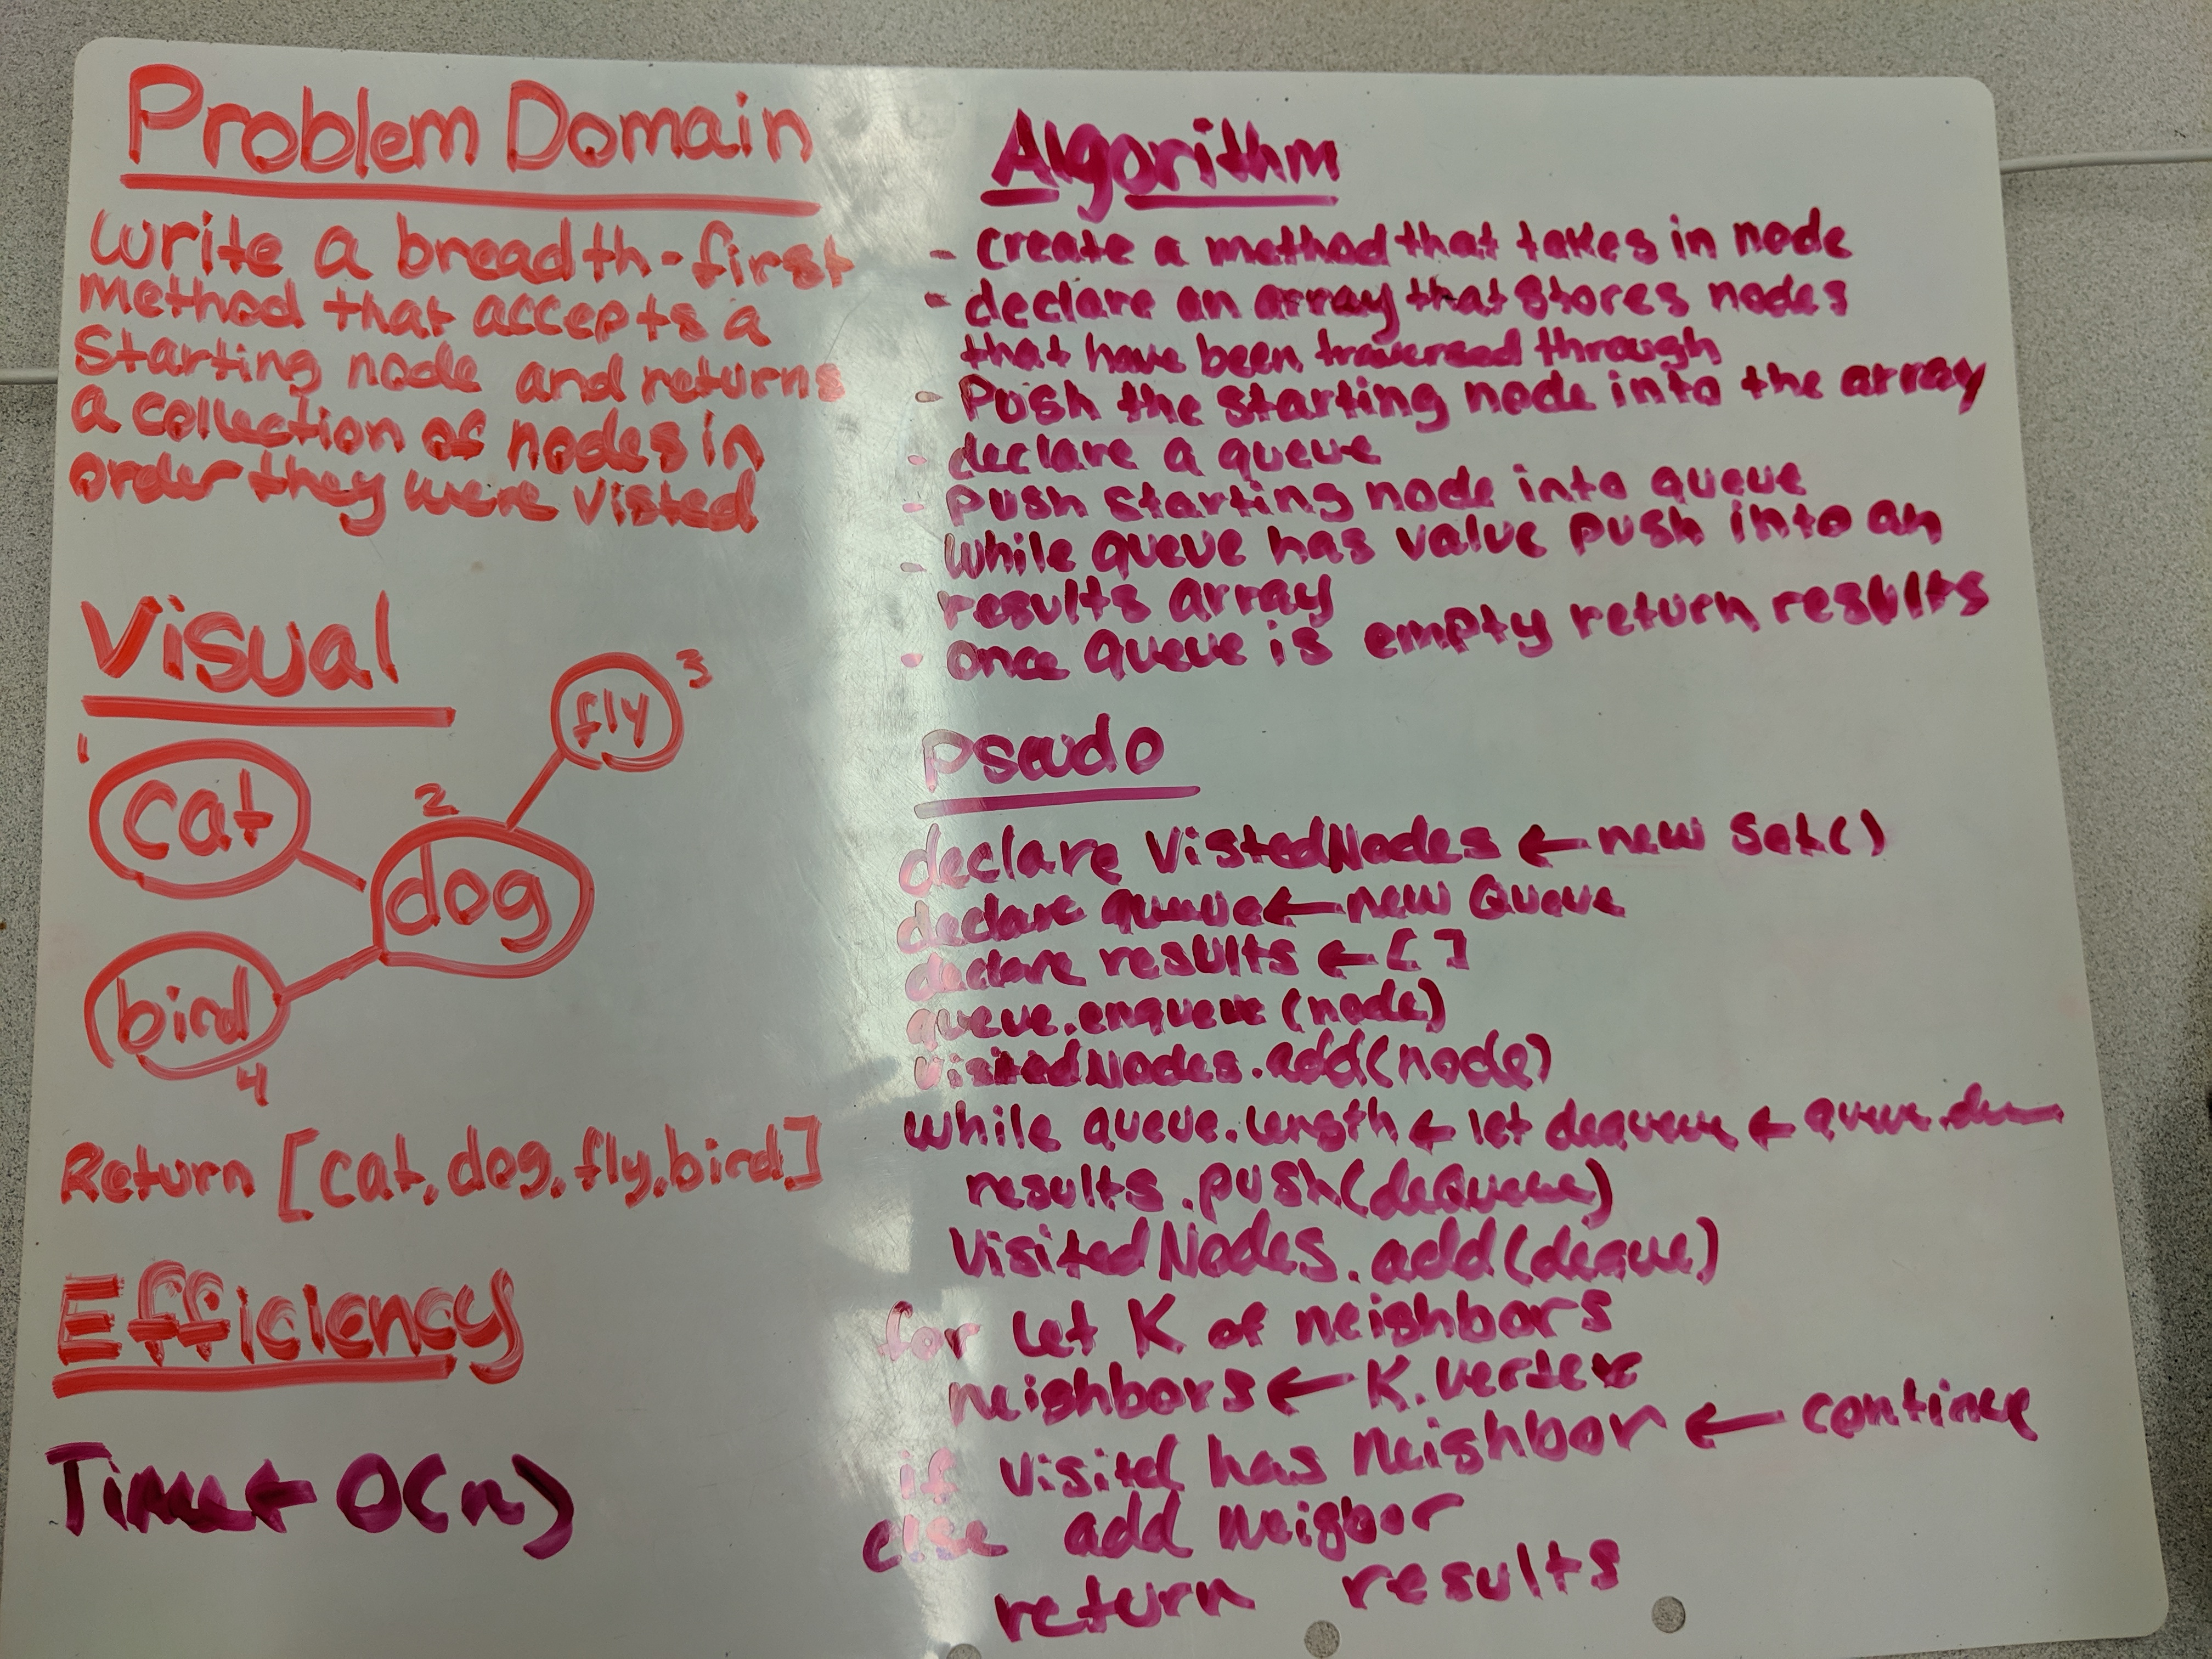 Problem Domain
write a breadth-first
method that accepts a
Starting node and returns
a collection of nodes in
order they were visted
Visual
1
cat
2
dog
fly
3
bird
4
Return [cat, dog, fly, bird]
Efficiency
Time ← O(n)
Algorithm
- create a method that takes in node
- declare an array that stores nodes
that have been traversed through
- Push the starting node into the array
- declare a queue
- push starting node into queue
- while queue has value push into an
results array
- one queue is empty return results
Psaudo
declare VistedNodes ← new Set()
declare queue ← new Queue
declare results ← []
queue.enqueue (node)
visitedNodes.add(node)
while queue.length ← let dequeue ←
results.push(dequeue)
VisitedNodes.add(dequeue)
for let K of neighbors
neighbors ← K.vertex
if visited has neighbor ← continue
else add neigbor
return results